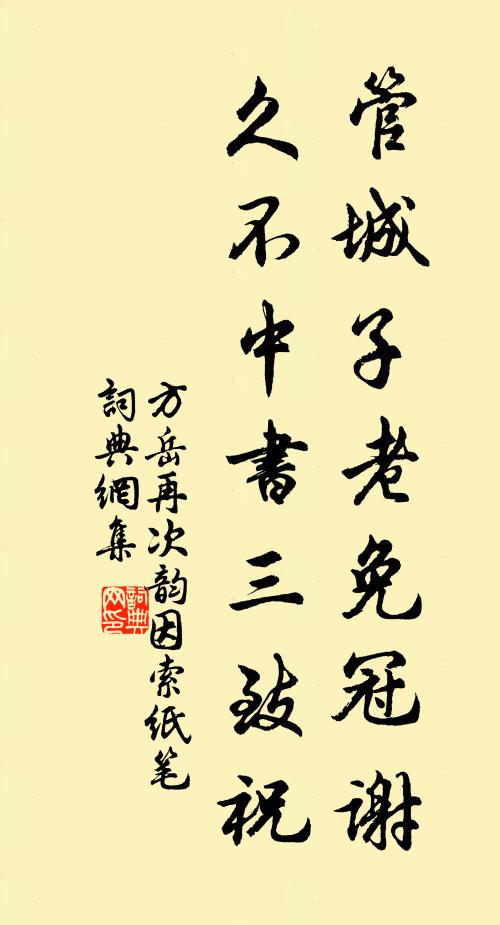 管城子老免冠谢
久不中書三致祝
方岳再次韵因索纸笔
詞典網集
詞典网印